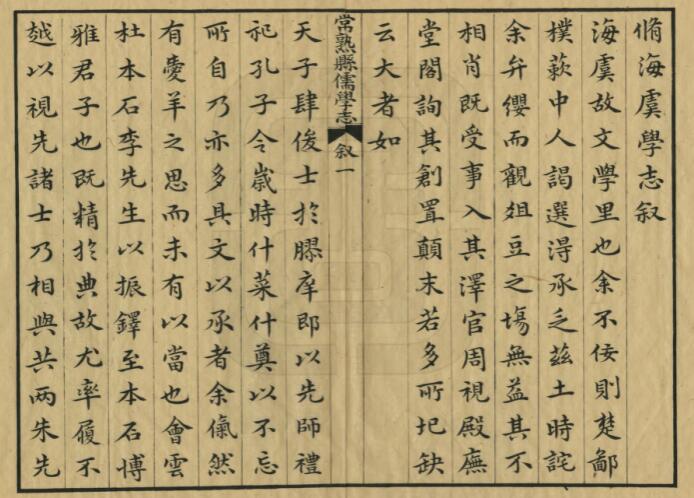 脩海虞學志叙
海虞故文學里也余不佞則楚鄙
樸蔌中人謁選得承乏茲土時詫
余弁纓而觀俎豆之塲無益其不
相肖既受事入其澤宮周視殿廡
堂閣詢其創置顛末若多所圮缺
云大者如
常熟縣儒學志
叙一
天子肆俊士於膠庠即以先師禮
祀孔子令歲時什菜什奠以不忘
所自乃亦多具文以承者余愾然
有愛羊之思而未有以當也會雲
杜本石李先生以振鐸至本石愽
雅君子也既精於典故尤率履不
越以視先諸士乃相與共兩朱先